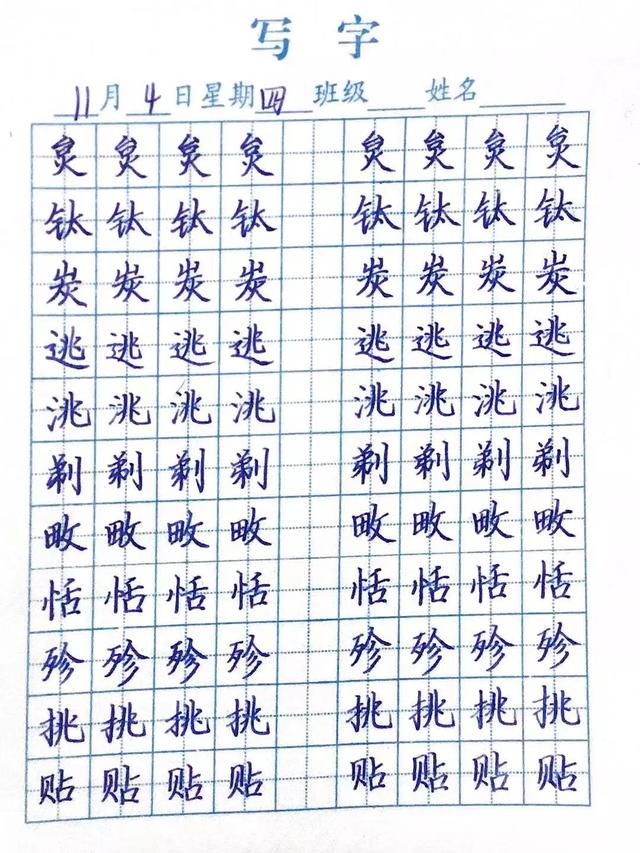 写 字
11月4日星期四 班级 姓名
炱 炱 炱 炱 炱 炱 炱 炱
钛 钛 钛 钛 钛 钛 钛 钛
炭 炭 炭 炭 炭 炭 炭 炭
逃 逃 逃 逃 逃 逃 逃 逃
洮 洮 洮 洮 洮 洮 洮 洮
剃 剃 剃 剃 剃 剃 剃 剃
畋 畋 畋 畋 畋 畋 畋 畋
恬 恬 恬 恬 恬 恬 恬 恬
殄 殄 殄 殄 殄 殄 殄 殄
挑 挑 挑 挑 挑 挑 挑 挑
贴 贴 贴 贴 贴 贴 贴 贴